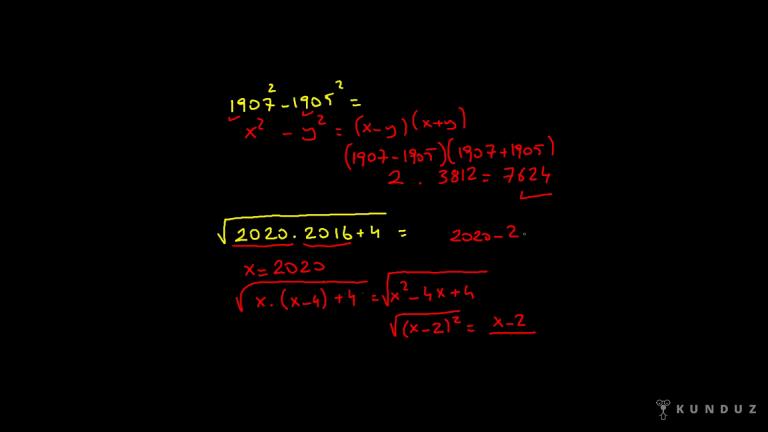 1907² - 1905² =
x² - y² = (x-y)(x+y)
(1907-1905)(1907+1905)
2 . 3812 = 7624
√2020.2016+4 = 2020-2.
x=2020
√x.(x-4)+4 = √x²-4x+4
√(x-2)² = x-2
KUNDUZ